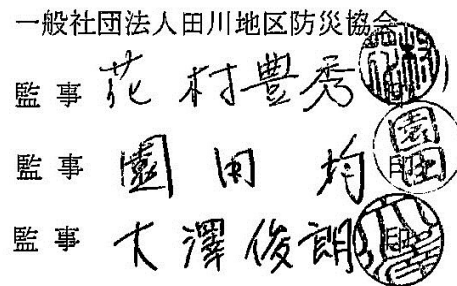 一般社団法人田川地区防災協会
監事 花村豊秀 印
監事 園田均 印
監事 大澤俊朗 印